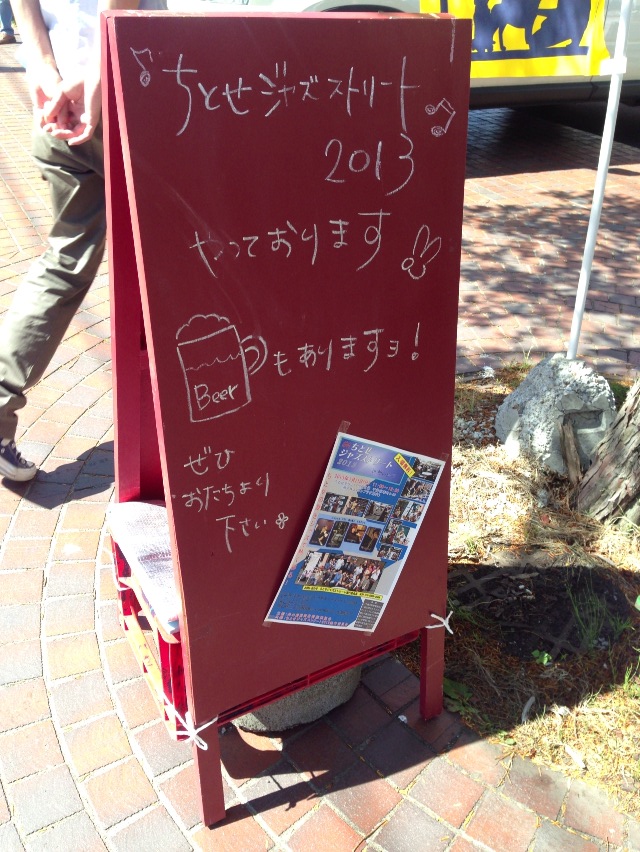 ちとせジャズストリート
2013
やっております
Beer
もありますョ!
ぜひ
おたちより
下さい
ちとせ
ジャズストリート
2013